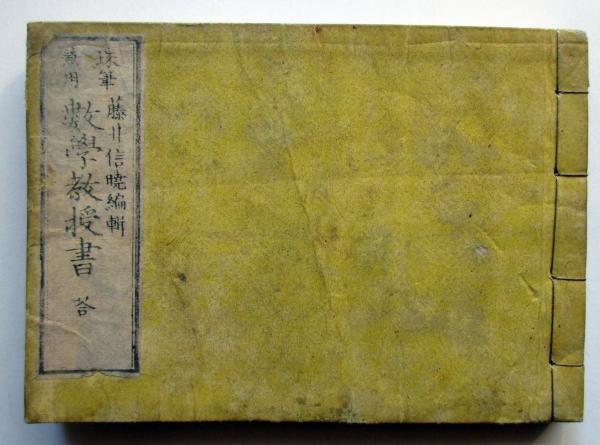 珠筆 藤川信曉編輯
兼用 數學教授書 答